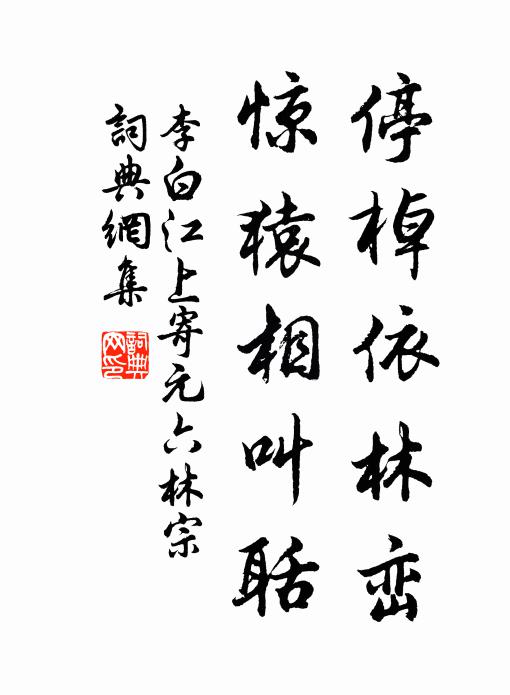 停棹依林峦
惊猿相叫聒
李白江上寄元六林宗
詞典網集
詞典网印